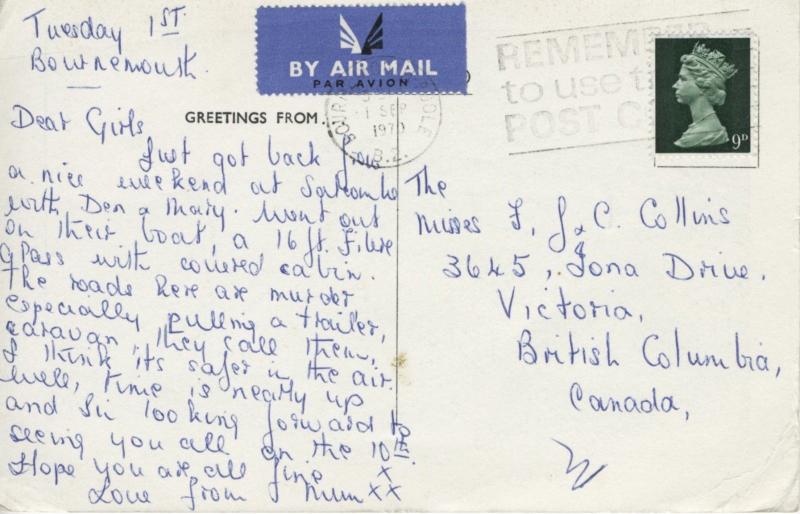 Tuesday 1ST.
Bournemouth.
BY AIR MAIL
PAR AVION
GREETINGS FROM...
1 SEP
1970
B.Z.
REMEMBER
to use the
POST C
9D
Dear Girls
Just got back f
a nice weekend at Salcombe
with Den & Mary. Went out
on their boat, a 16 ft. Fibre
glass with covered cabin.
The roads here are murder
especially pulling a trailer,
caravan, they call them,
I think its safer in the air.
Well, time is nearly up
and I'm looking forward to
seeing you all on the 10th.
Hope you are all fine X
Love from Mum XX
The
Misses F, J & C. Collins
3645, Iona Drive.
Victoria,
British Columbia,
Canada,